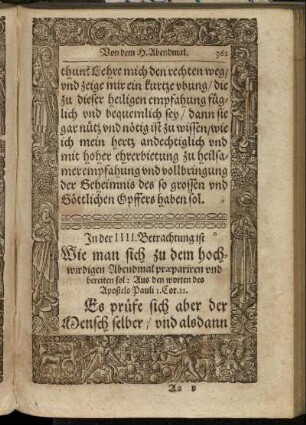 Von dem H. Abendmal. 362
thun? Lehre mich den rechten weg/
vnd zeige mir ein kurtze vbung/ die
zu dieser heiligen empfahung füg-
lich vnd bequemlich sey/ dann sie
gar nütz vnd nötig ist zu wissen/ wie
ich mein hertz andechtiglich vnd
mit hoher ehrerbietung zu heilsa-
mer empfahung vnd vollbringung
der Geheimnis des so grossen vnd
Göttlichen Opffers haben sol.
In der IIII. Betrachtung ist
Wie man sich zu dem hoch-
wirdigen Abendmal præpariren vnd
bereiten sol: Aus den worten des
Apostels Pauli 1. Cor. 11.
Es prüfe sich aber der
Mensch selber/ vnd alsdann
Aa ij